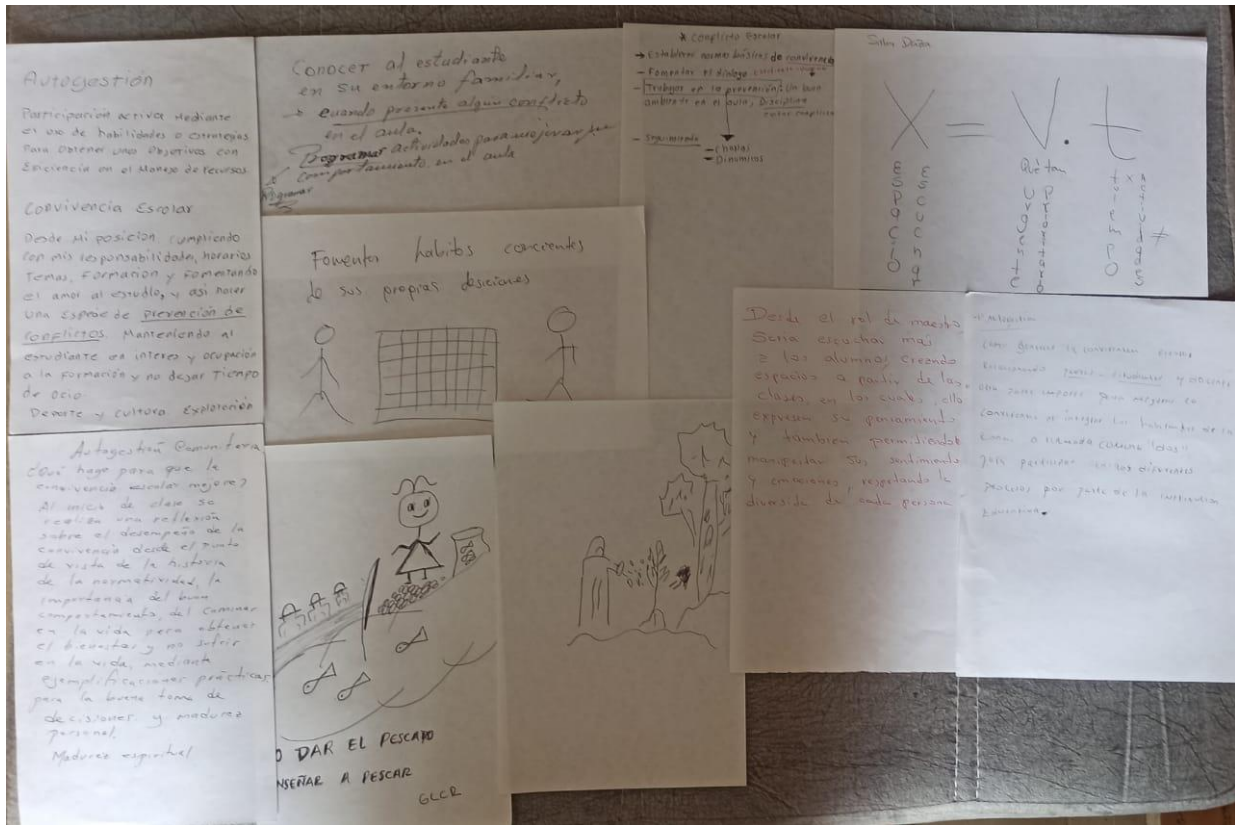 Autogestión
Participación activa mediante
el uso de habilidades o estrategias
Para obtener unos objetivos con
Eficiencia en el Manejo de recursos.
Convivencia Escolar
Desde Mi posición, cumpliendo
con mis responsabilidades, horarios
Temas, Formación y Fomentando
el amor al estudio, y asi hacer
una especie de prevención de
conflictos. Manteniendo al
estudiante en interes y ocupación
a la Formación y no dejar Tiempo
de ocio.
Deporte y cultura Exploración
Conocer al estudiante
en su entorno familiar,
→ cuando presente algun conflicto
en el aula.
Programar actividades para mejorar su
comportamiento en el aula
* Conflicto Escolar
→ Establecer normas básicas de convivencia
- Fomentar el diálogo
- Trabajar en la prevención: Un buen
ambiente en el aula, Disciplina
- Seguimiento
- Charlas
- Dinamicas
X = V. t
Espacio
Escuchar
Què tan
Urgente
Prioritario
tiempo
x
Actividades
≠
Fomentar habitos concientes
de sus propias desiciones
Desde el rol de maestro
Seria escuchar mas
a los alumnos, creando
espacios a partir de las
clases, en los cuales, ello
expresen su pensamiento
y tambien permitiendo
manifestar sus sentimiento
y emociones, respetando la
diverside de cada persona
la convivencia escolar
padres - estudiantes y docentes
convivencia es integrar los habitantes de la
"clas"
para participar en los diferentes
procesos por parte de la institución
Educativa.
Autogestión Comunitera
¿Qué hago para que la
convivencia escolar mejore?
Al inicio de clase se
realiza una reflexión
sobre el desempeño de la
convivencia desde el punto
de vista de la historia
de la normatividad, la
importancia del buen
comportamiento, del caminar
en la vida para obtener
el bienestar y no sufrir
en la vida, mediante
ejemplificaciones prácticas
para la buena toma de
decisiones y madurez
personal.
Madurez espiritual
O DAR EL PESCADO
NSEÑAR A PESCAR
GLCR